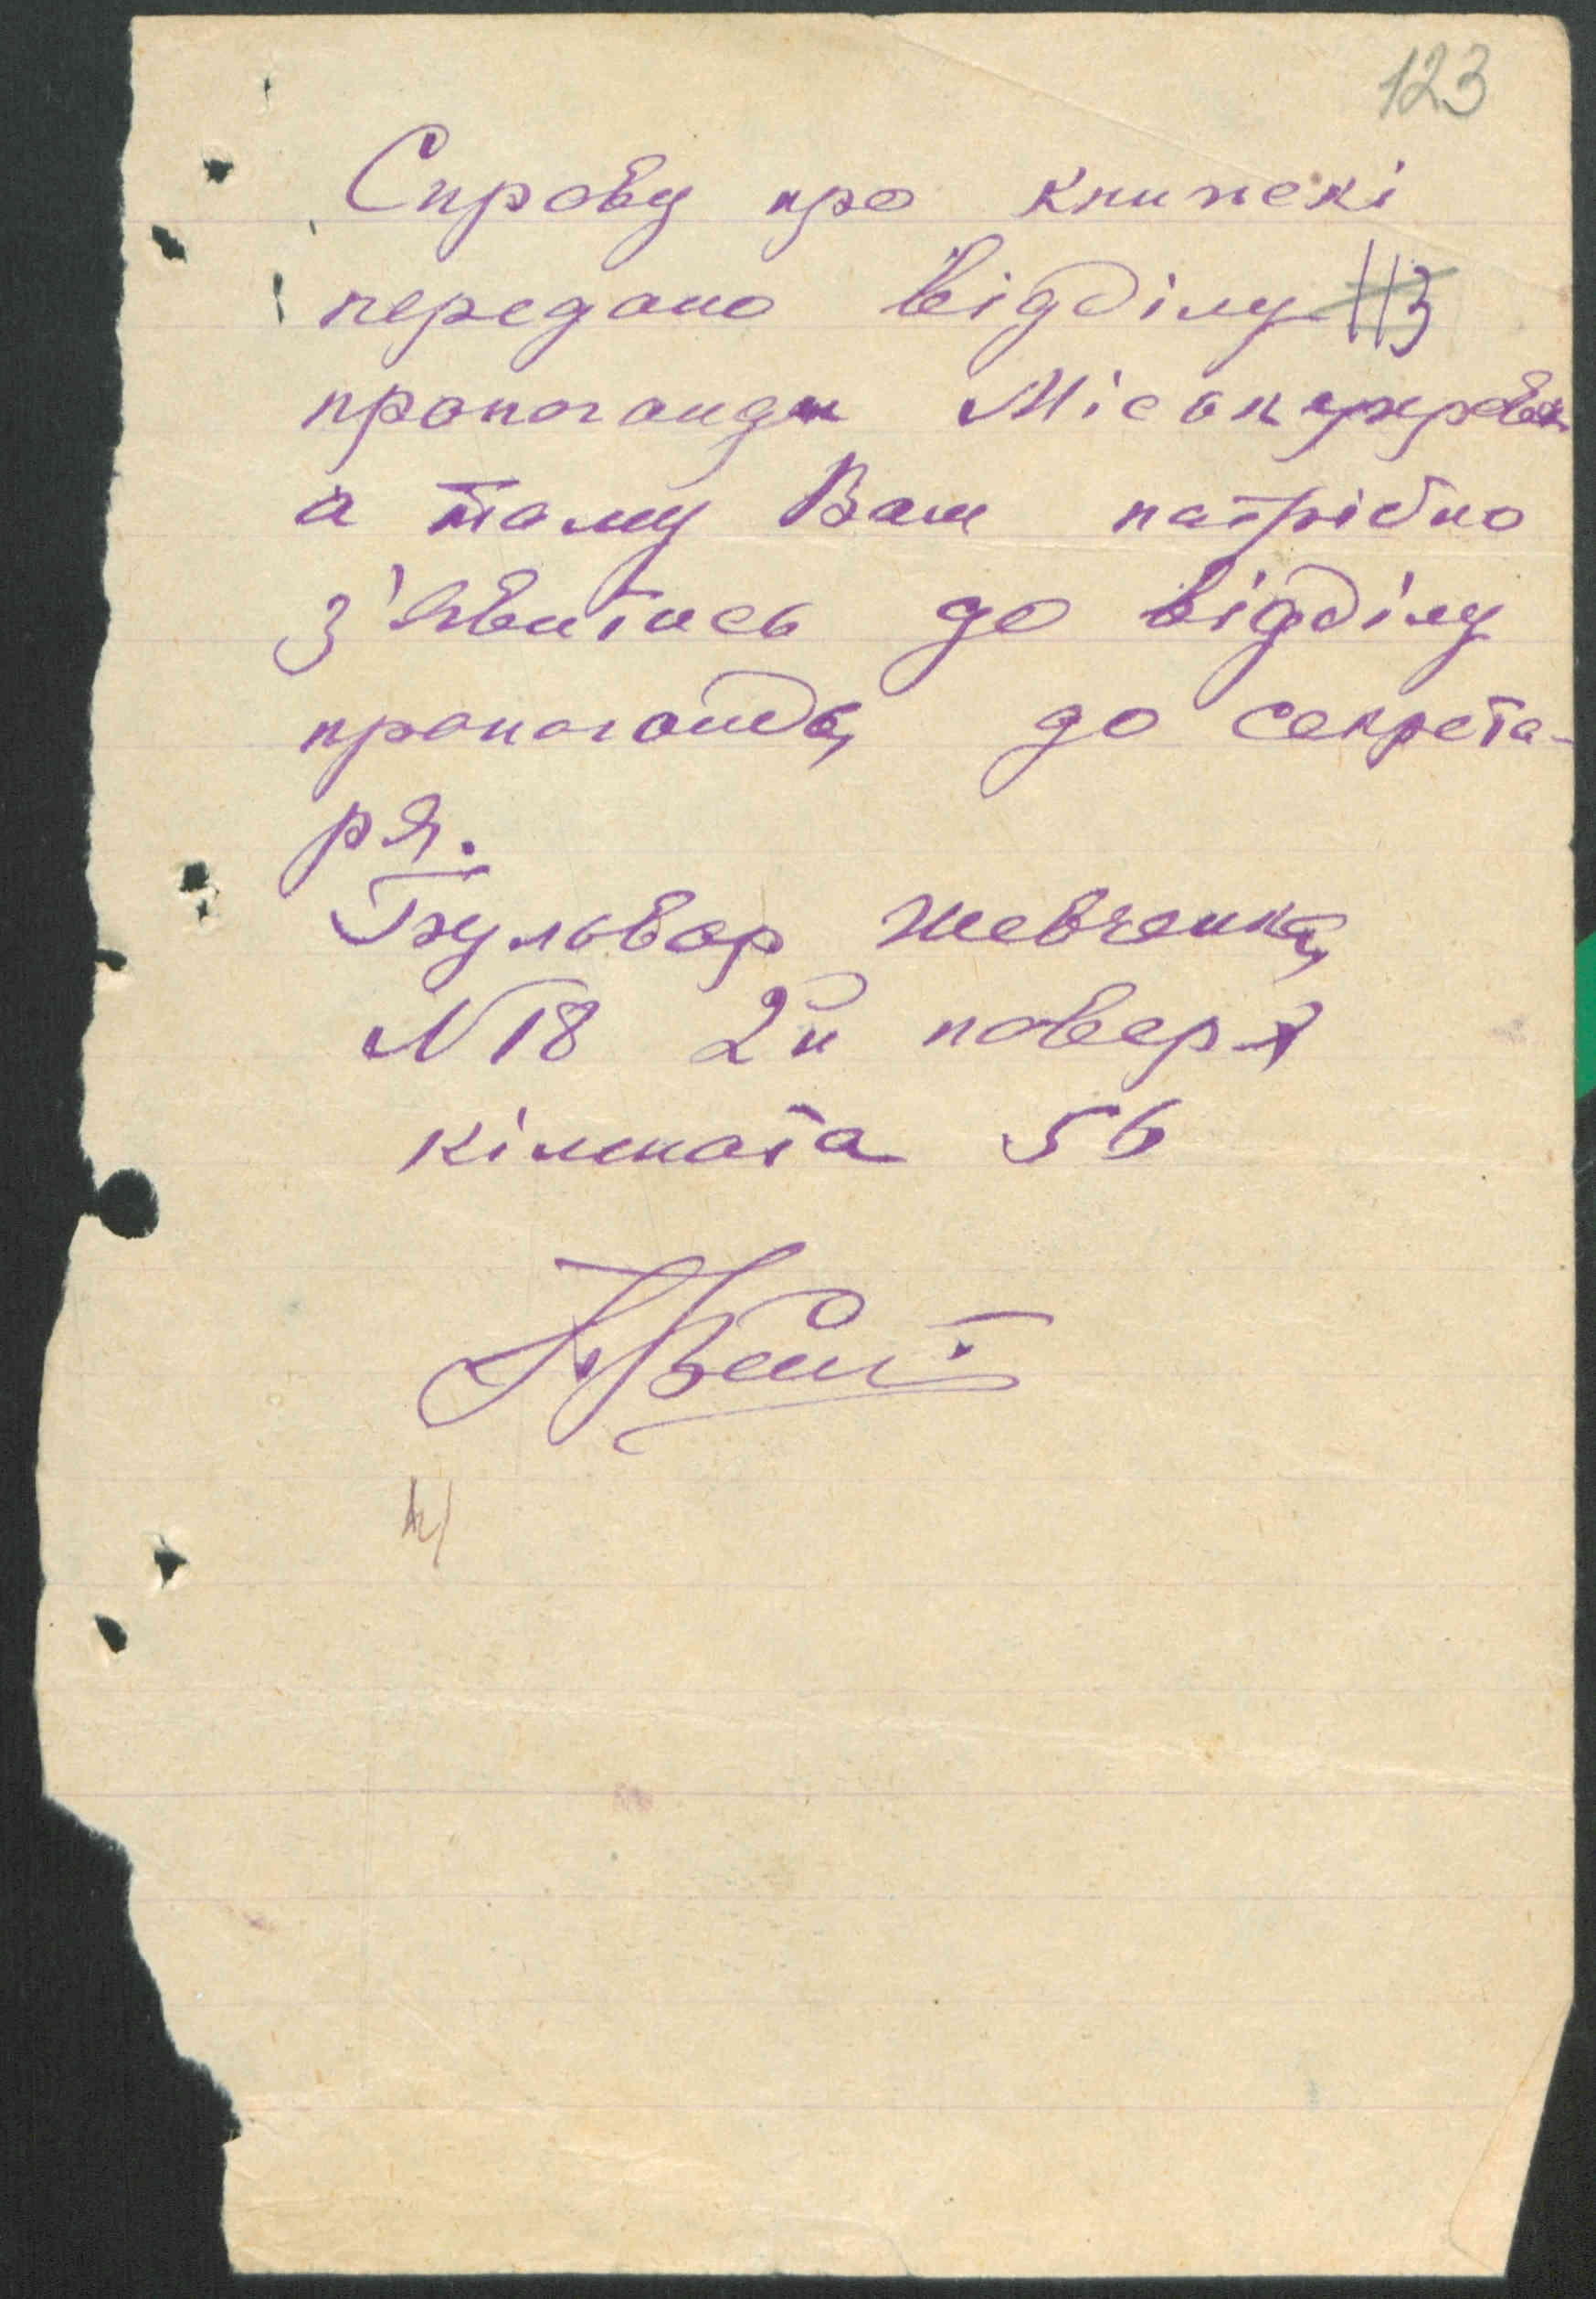 123
Справу про книжки
передано відділу 113
пропоганди Міськуправи
а тому Вам потрібно
з'явитись до відділу
пропоганди, до секрета-
ря.
Бульвар Шевченка,
N 18 2й поверх
кімната 56